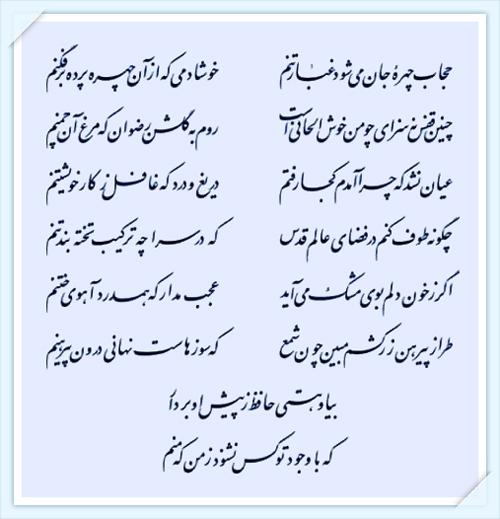 حجاب چهرهٔ جان می‌شود غبار تنم خوشا دمی که از آن چهره پرده برفکنم
چنین قفس نه سزای چو من خوش الحانی است روم به گلشن رضوان که مرغ آن چمنم
عیان نشد که چرا آمدم کجا رفتم دریغ و درد که غافل ز کار خویشتنم
چگونه طوف کنم در فضای عالم قدس که در سراچه ترکیب تخته بند تنم
اگر ز خون دلم بوی مشک می‌آید عجب مدار که همدرد آهوی ختنم
طراز پیرهن زرکشم مبین چون شمع که سوزهاست نهانی درون پیرهنم
بیا و هستی حافظ ز پیش او بردار
که با وجود تو کس نشنود ز من که منم